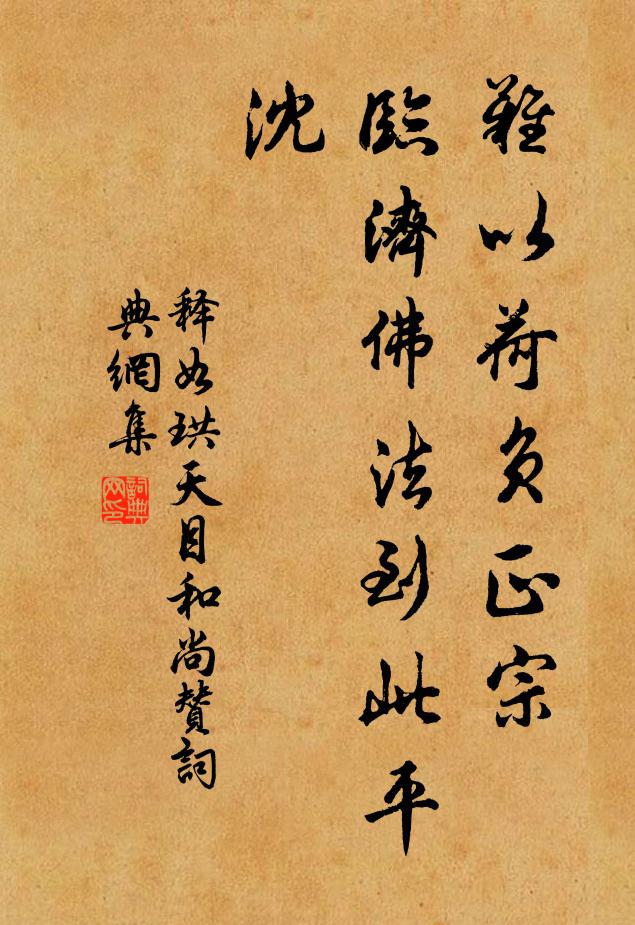 難以荷負正宗
臨濟佛法到此平
沈
释如珙天目和尚贊詞
典網集
詞典
网印